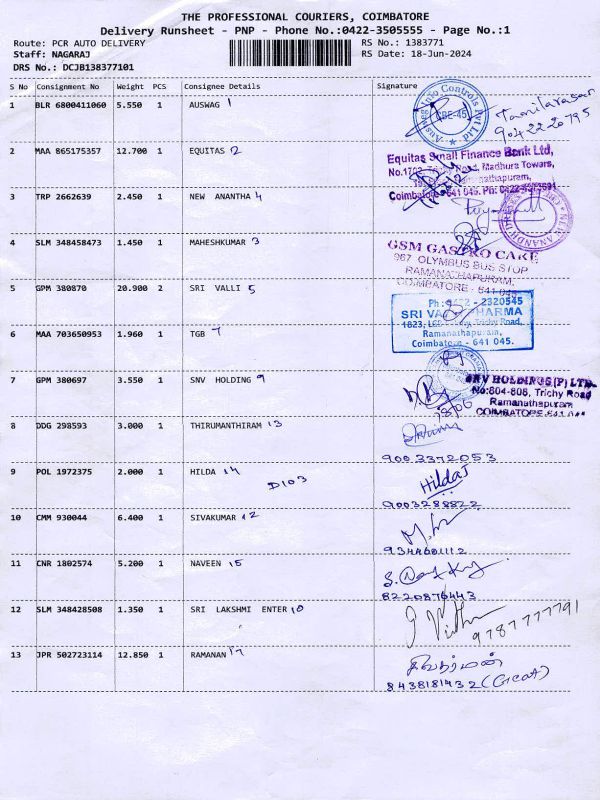 THE PROFESSIONAL COURIERS, COIMBATORE
Delivery Runsheet - PNP - Phone No.:0422-3505555 - Page No.:1
Route: PCR AUTO DELIVERY
RS No.: 1383771
Staff: NAGARAJ
RS Date: 18-Jun-2024
DRS No.: DCJB138377101
S No Consignment No Weight PCS Consignee Details Signature
1 BLR 6800411060 5.550 1 AUSWAG 1
CBE-45
2 MAA 865175357 12.700 1 EQUITAS 2
Equitas Small Finance Bank Ltd,
Madhura Towers,
3 TRP 2662639 2.450 1 NEW ANANTHA 4
4 SLM 348458473 1.450 1 MAHESHKUMAR 3
GSM GASTRO CARE
967 OLYMBUS BUS STOP
RAMANATHAPURAM,
COIMBATORE - 641 045
5 GPM 380870 20.900 2 SRI VALLI 5
Ph: 0422 - 2320545
SRI VA PHARMA
Trichy Road,
Ramanathapuram,
Coimbatore - 641 045.
6 MAA 703650953 1.960 1 TGB 7
7 GPM 380697 3.550 1 SNV HOLDING 9
SNV HOLDINGS (P) LTD.
No:804-805, Trichy Road
Ramanathapuram
COIMBATORE-641
18/06
8 DDG 298593 3.000 1 THIRUMANTHIRAM 13
9003372053
9 POL 1972375 2.000 1 HILDA 14
D103
Hilda
9003288822
10 CMM 930044 6.400 1 SIVAKUMAR 12
9344601112
11 CNR 1802574 5.200 1 NAVEEN 15
8220876443
12 SLM 348428508 1.350 1 SRI LAKSHMI ENTER 10
9787777791
13 JPR 502723114 12.850 1 RAMANAN 17
8438181432